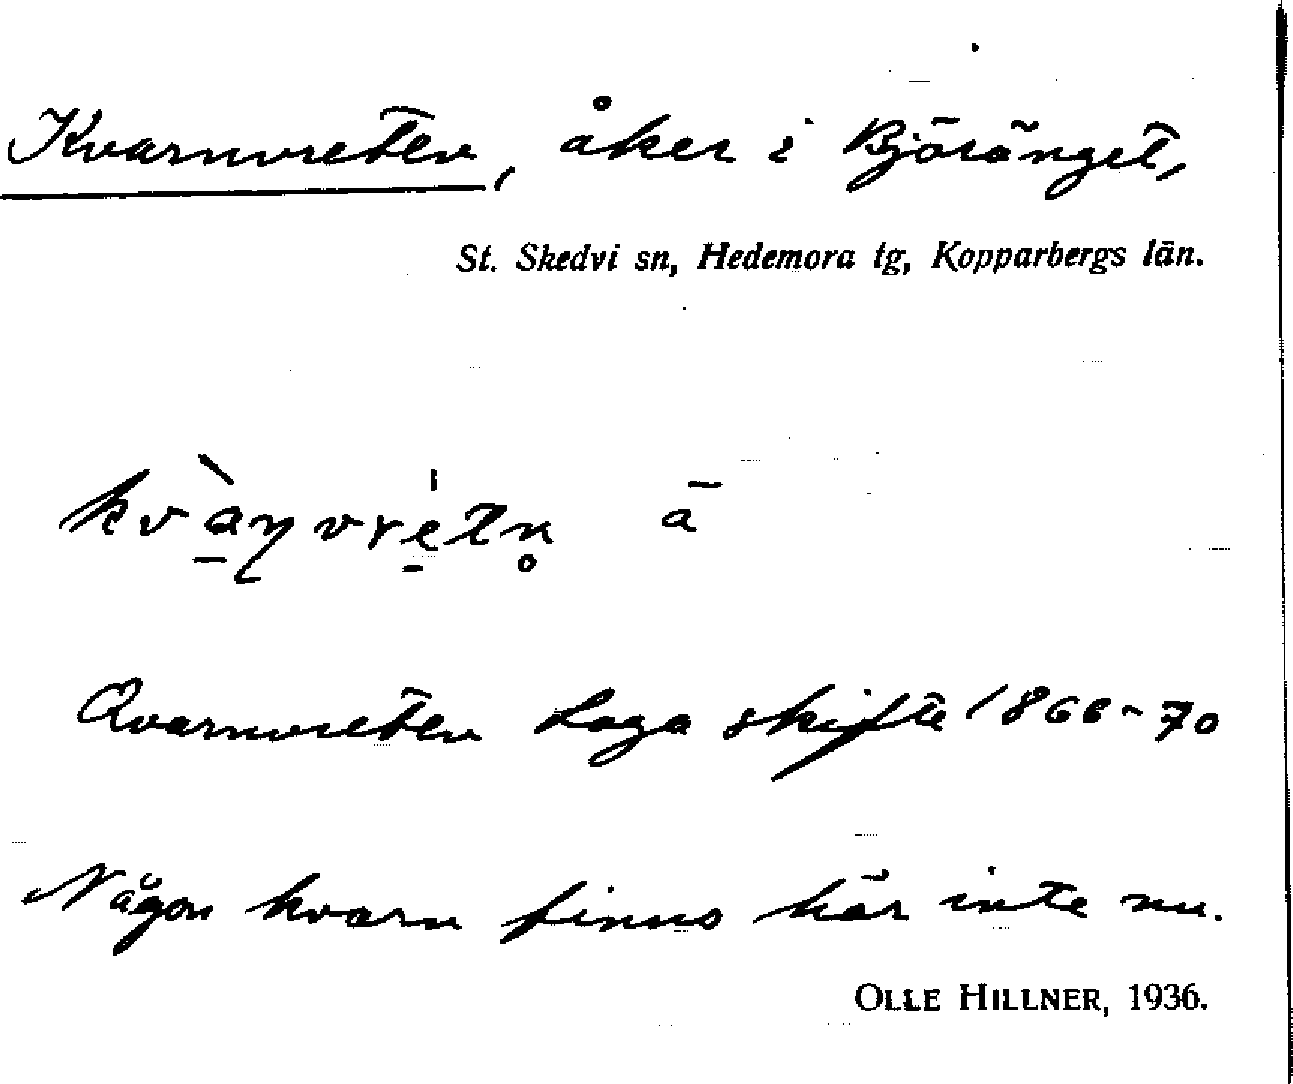 Kvarnvreten, åker i Björänget,
St. Skedvi sn, Hedemora tg, Kopparbergs län.
kv̀a̱ɳvréṯn̥ ā
Qvarnvreten Laga skifte 1866-70
Någon kvarn finns här inte nu.
OLLE HILLNER, 1936.